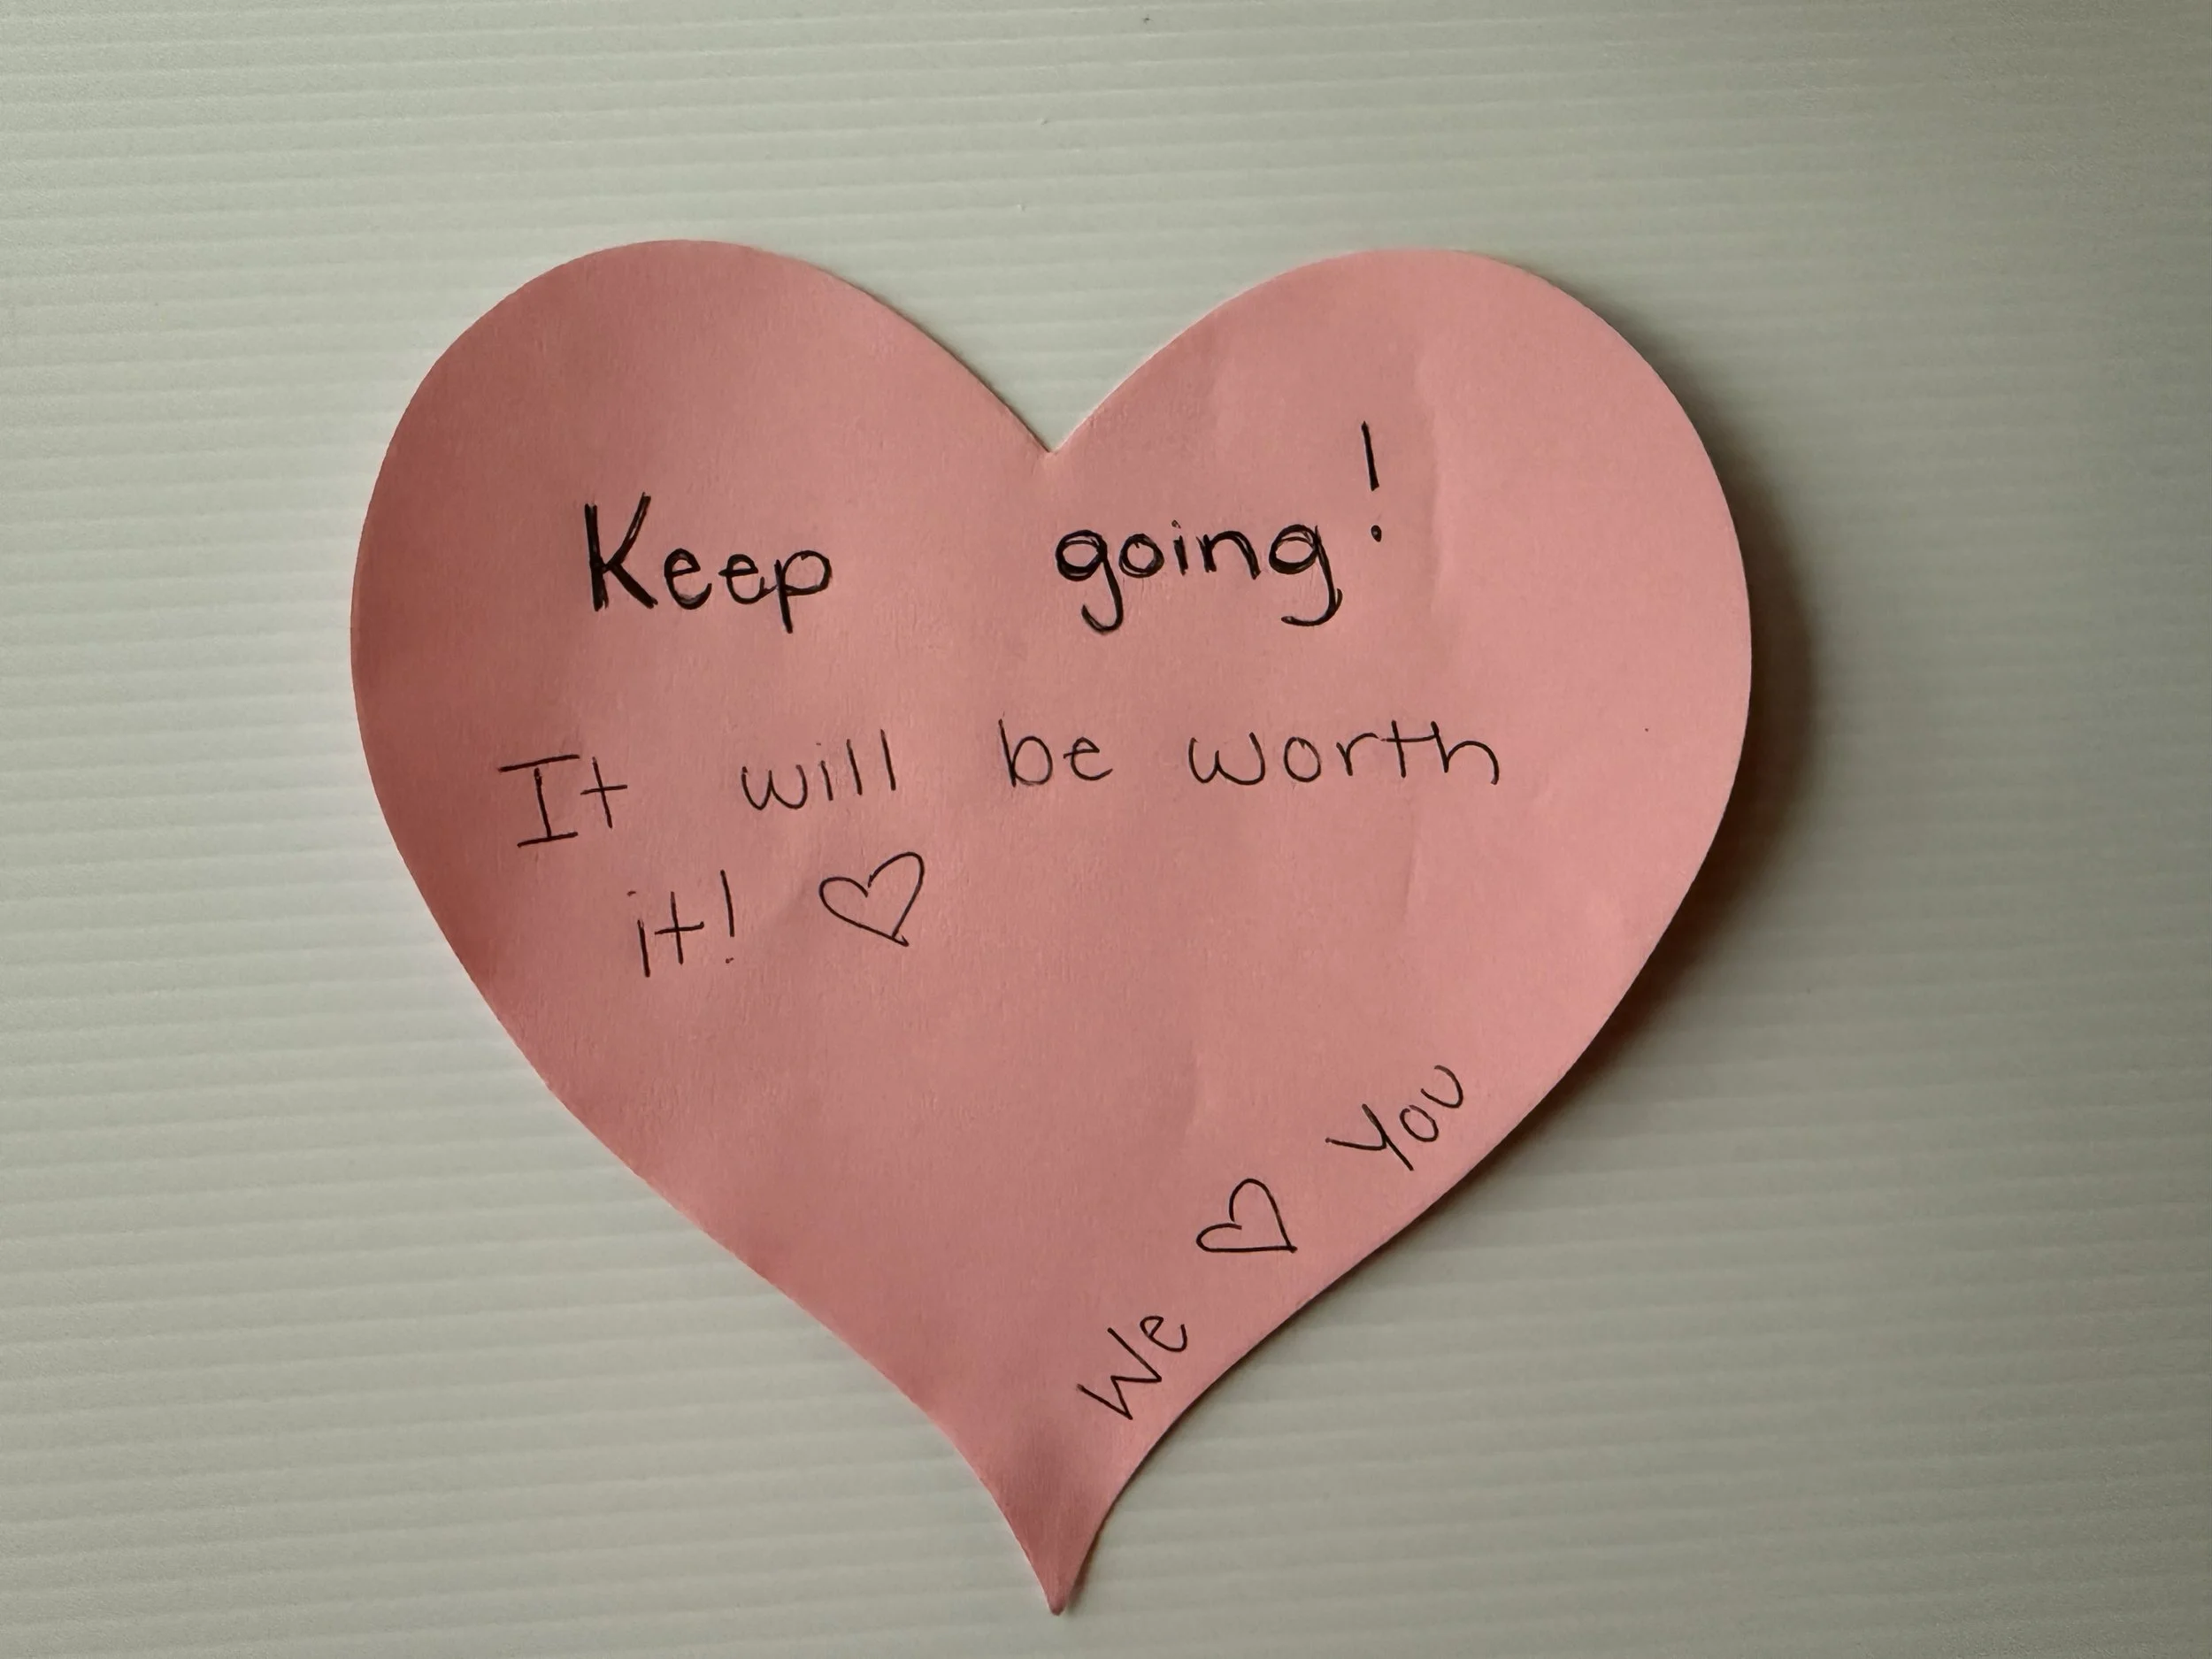 Keep going!
It will be worth
it! ♡
We ♡ You